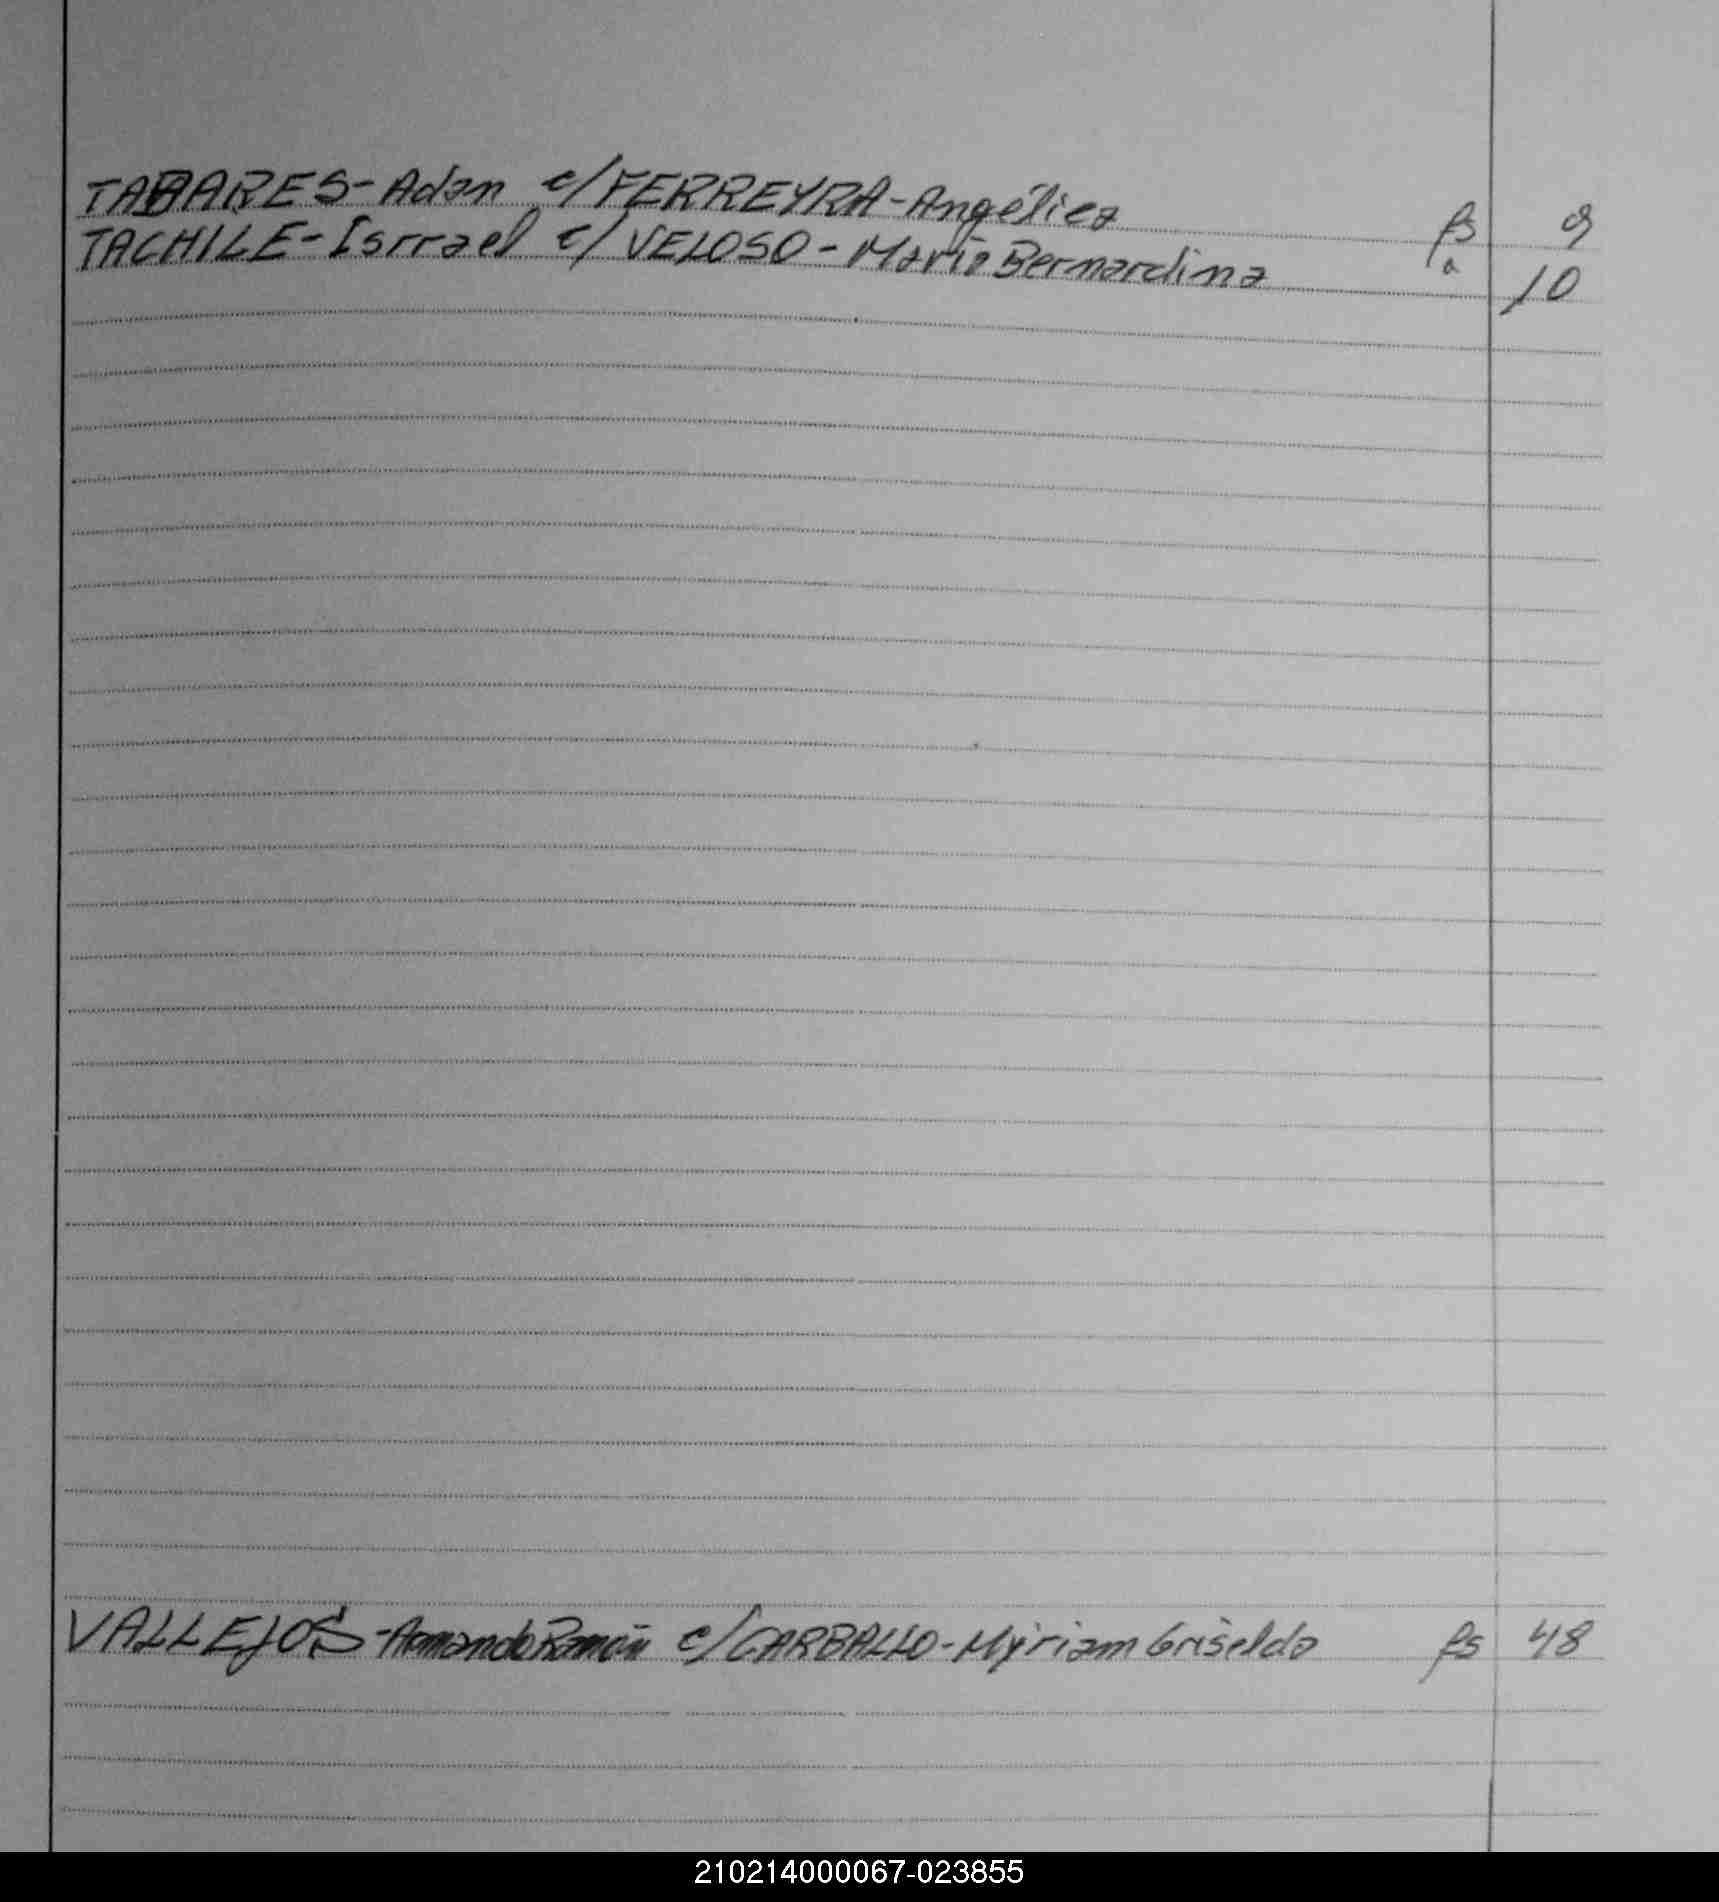 TABARES-Adan c/FERREYRA-Angélica fs 9
TACHILE-Isrrael c/VELOSO-María Bernardina " 10
VALLEJOS-Armando Ramón c/CARBALLO-Myriam Griselda fs 48
210214000067-023855